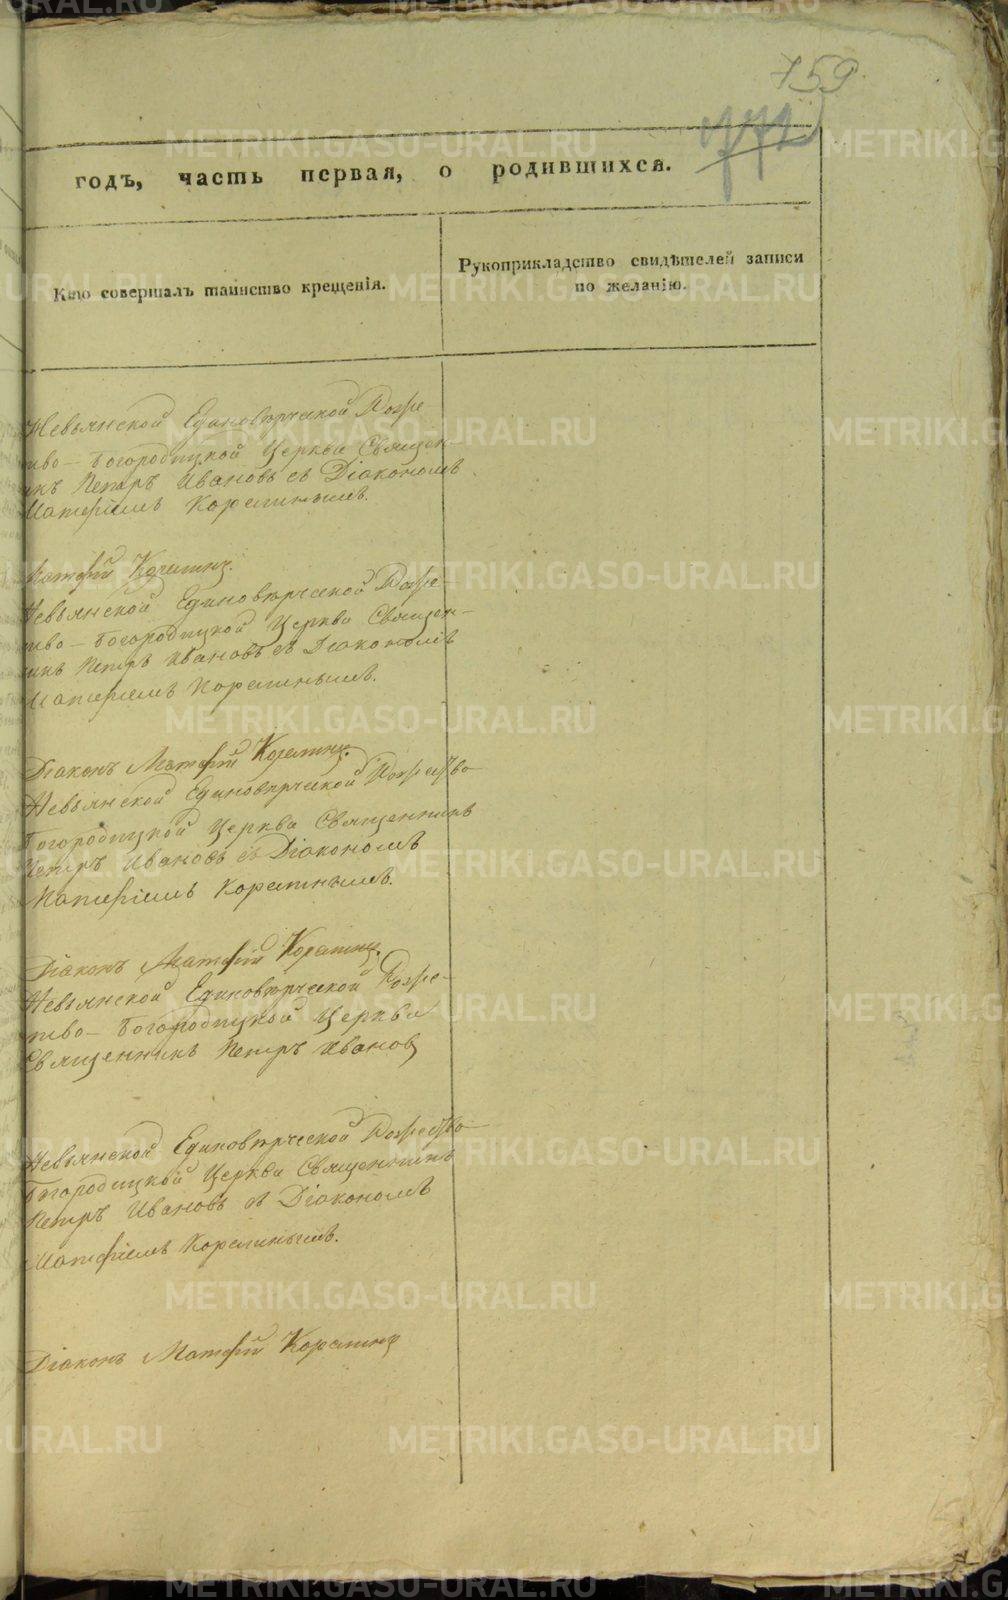 759
772
годъ, часть первая, о родившихся.
Кто совершалъ таинство крещенія.
Рукоприкладство свидѣтелей записи
по желанію.
Невьянской Единовѣрческой Рожде
ство-Богородицкой Церкви Священ-
икъ Петръ Ивановъ съ Діакономъ
Матфіемъ Корепинымъ.
Матфій Корепинъ.
Невьянской Единовѣрческой Рожде-
ство-Богородицкой Церкви Священ-
икъ Петръ Ивановъ съ Діакономъ
Матфіемъ Корепинымъ.
Діаконъ Матфій Корепинъ.
Невьянской Единовѣрческой Рождество
Богородицкой Церкви Священникъ
Петръ Ивановъ съ Діакономъ
Матфіемъ Корепинымъ.
Діаконъ Матфій Корепинъ.
Невьянской Единовѣрческой Рожде-
ство-Богородицкой Церкви
Священникъ Петръ Ивановъ
Невьянской Единовѣрческой Рождество
Богородицкой Церкви Священникъ
Петръ Ивановъ съ Діакономъ
Матфіемъ Корепинымъ.
Діаконъ Матфій Корепинъ
METRIKI.GASO-URAL.RU